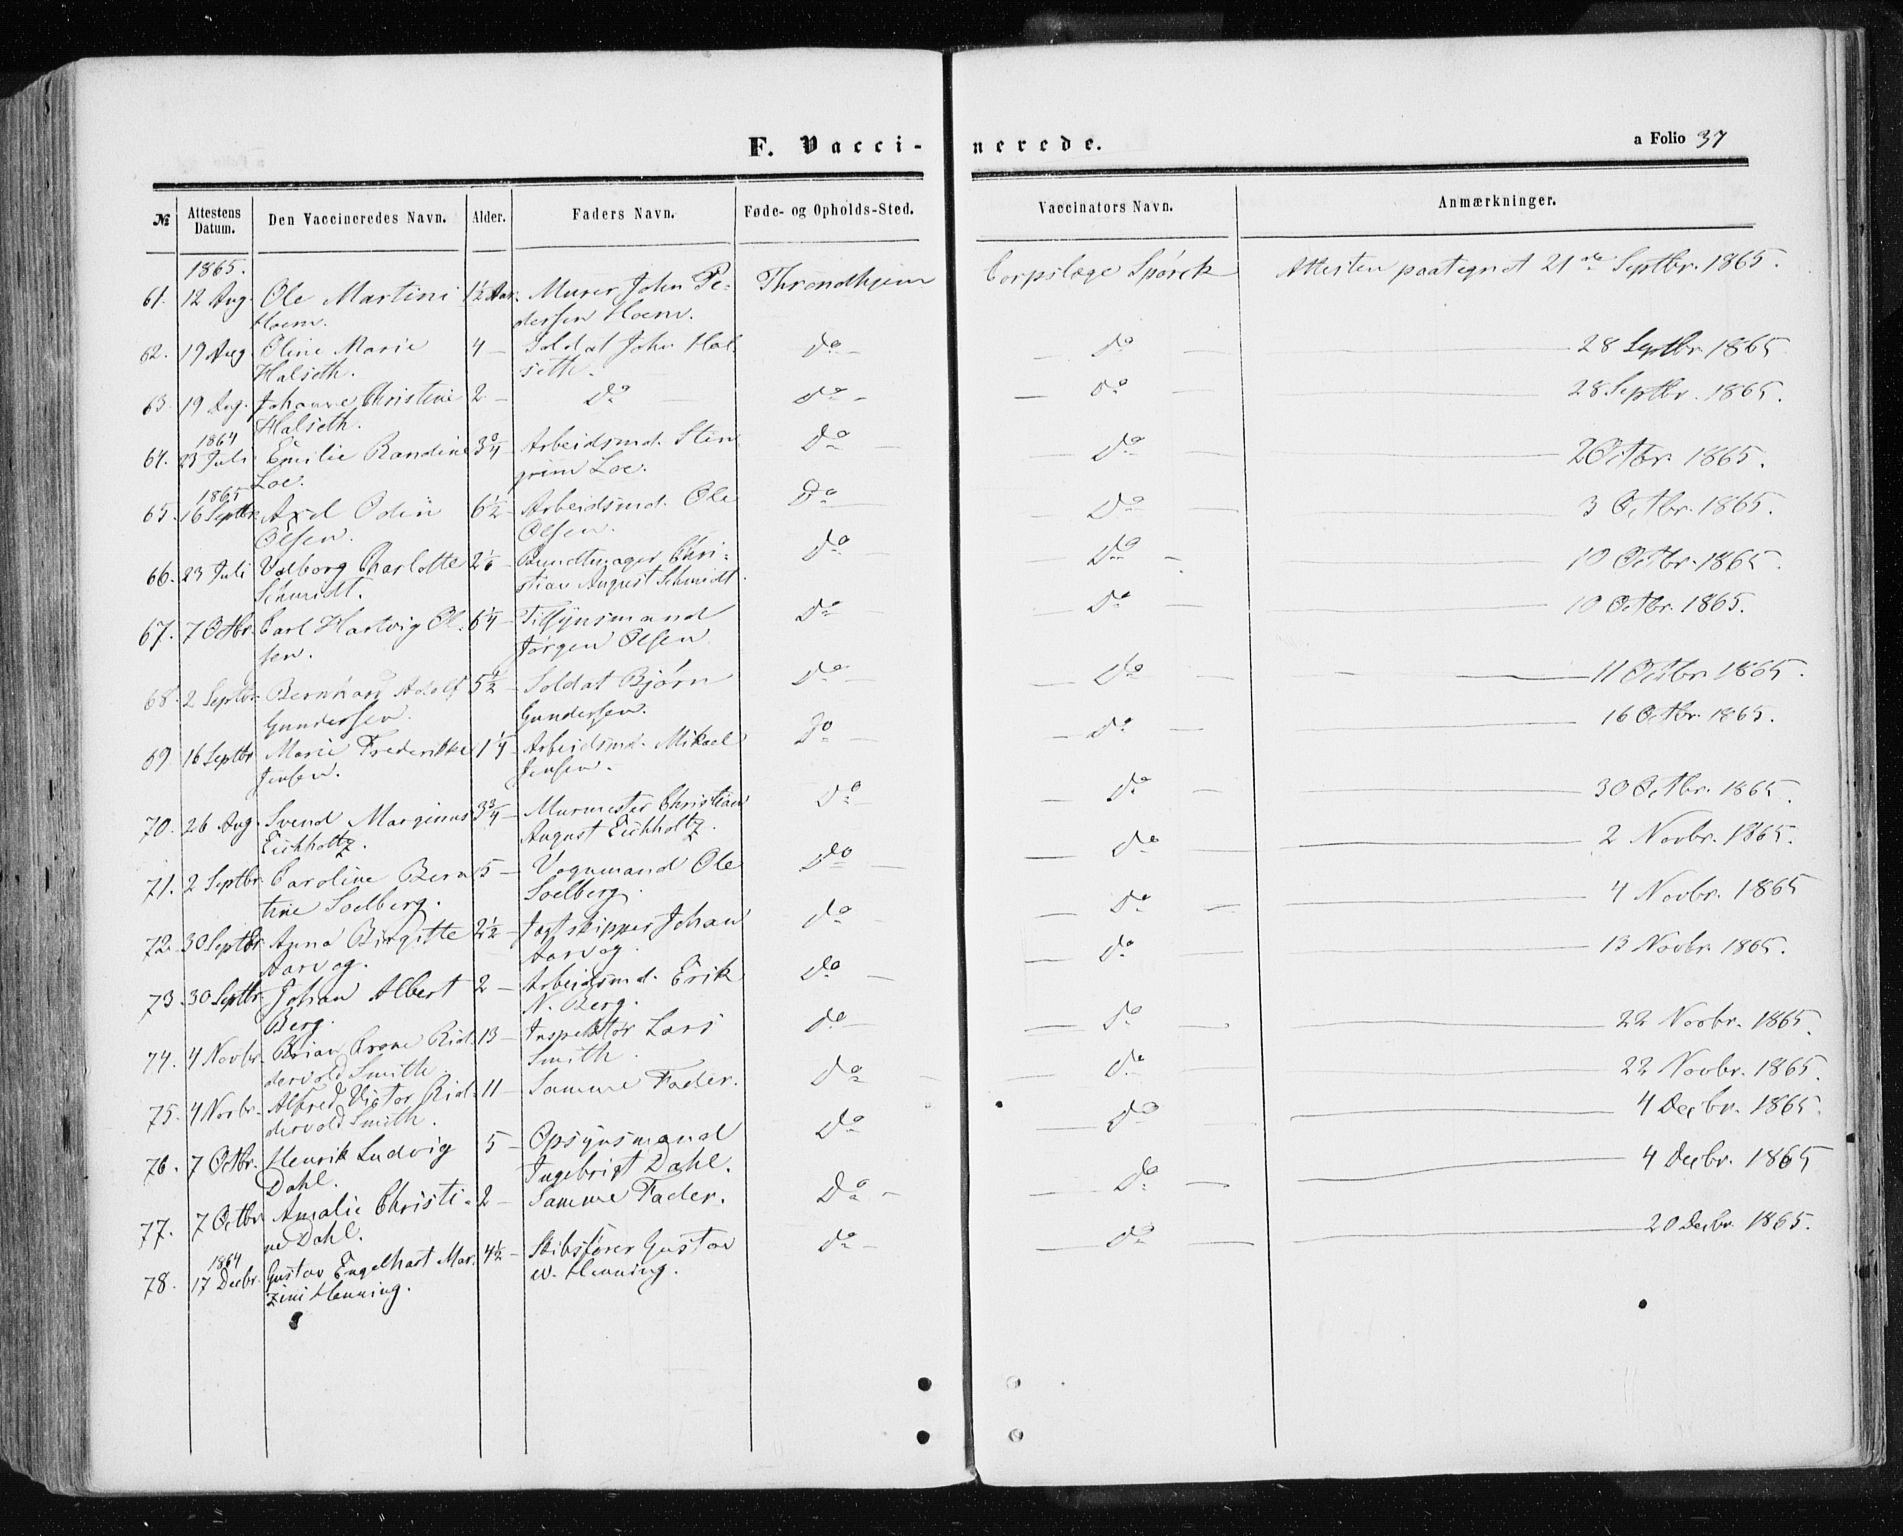 F. Vacci-nerede.
a Folio 37
№ Attestens Datum. Den Vaccineredes Navn. Alder. Faders Navn. Føde- og Opholds-Sted. Vaccinators Navn. Anmærkninger.
1865.
61. 12 Aug. Ole Martini 1½ Aar. Murer John Pe- Throndhjem Corpslæge Spørck Attesten paategnet 21de Septbr. 1865.
Hoem. dersen Hoem.
62. 19 Aug Oline Marie 4 — Soldat John Hal- do — — do — 28 Septbr. 1865.
Halseth. seth.
63. 19 Aug. Johanne Christine 2 — do — do — — do — 28 Septbr. 1865.
Halseth.
1864
64. 23 Juli Emilie Randine 3¾ Arbeidsmd. Sten do — — do — 2 Octbr. 1865.
Loe. grim Loe.
1865
65. 16 Septbr. Axel Odin 6½ — Arbeidsmd. Ole Do — do — 3 Octbr. 1865.
Olsen. Olsen.
66. 23 Juli Valborg Charlotte — Bundtmager Chri- do — — Do — 10 Octbr. 1865.
Schmidt. stian August Schmidt.
67. 7 Octbr. Carl Hartvig Ol- 6¼ — Tilsynsmand do — — do — 10 Octbr. 1865.
sen. Jørgen Olsen
68. 2 Septbr. Bernhard Adolf 5½ — Soldat Bjørn do — — do — 11 Octbr. 1865.
Gundersen. Gundersen.
69 16 Septbr Marie Frederikke 1¼ — Arbeidsmd. Mikael Do — do — 16 Octbr. 1865.
Jensen. Jensen.
70. 26 Aug. Svend Marginus 3¾ — Murmester Christian do — — do — 30 Octbr. 1865.
Eichholtz. August Eichholtz.
71. 2 Septbr. Caroline Bern 5 — Vognmand Ole do — — do — 2 Novbr. 1865.
tine Soelberg. Soelberg.
72. 30 Septbr. Anna Birgitte 2½ — Jagtskipper Johan do — — do — 4 Novbr. 1865
Aarvog. Aarvog.
73. 30 Septbr. Johan Albert 2 — Arbeidsmd. Erik do — — do — 13 Novbr. 1865.
Berg. N. Berg.
74. 4 Novbr. Brian Crone Rid- 13 — Inspektør Lars do — — do — 22 Novbr. 1865.
dervold Smith. Smith.
75. 4 Novbr. Alfred Victor Rid- 11 — Samme Fader. do — — do — 22 Novbr. 1865.
dervold Smith.
76. 7 Octbr. Henrik Ludvig 5 — Opsynsmand do — do — 4 Decbr. 1865.
Dahl. Ingebrigt Dahl.
77. 7 Octbr Amalie Christi- 2 — Samme Fader. do — — do — 4 Decbr. 1865
ne Dahl.
1864
78. 17 Decbr. Gustav Engelhart Mar- 4½ — Skibsfører Gustav do — — do — 20 Decbr. 1865.
zini Henning. W. Henning.